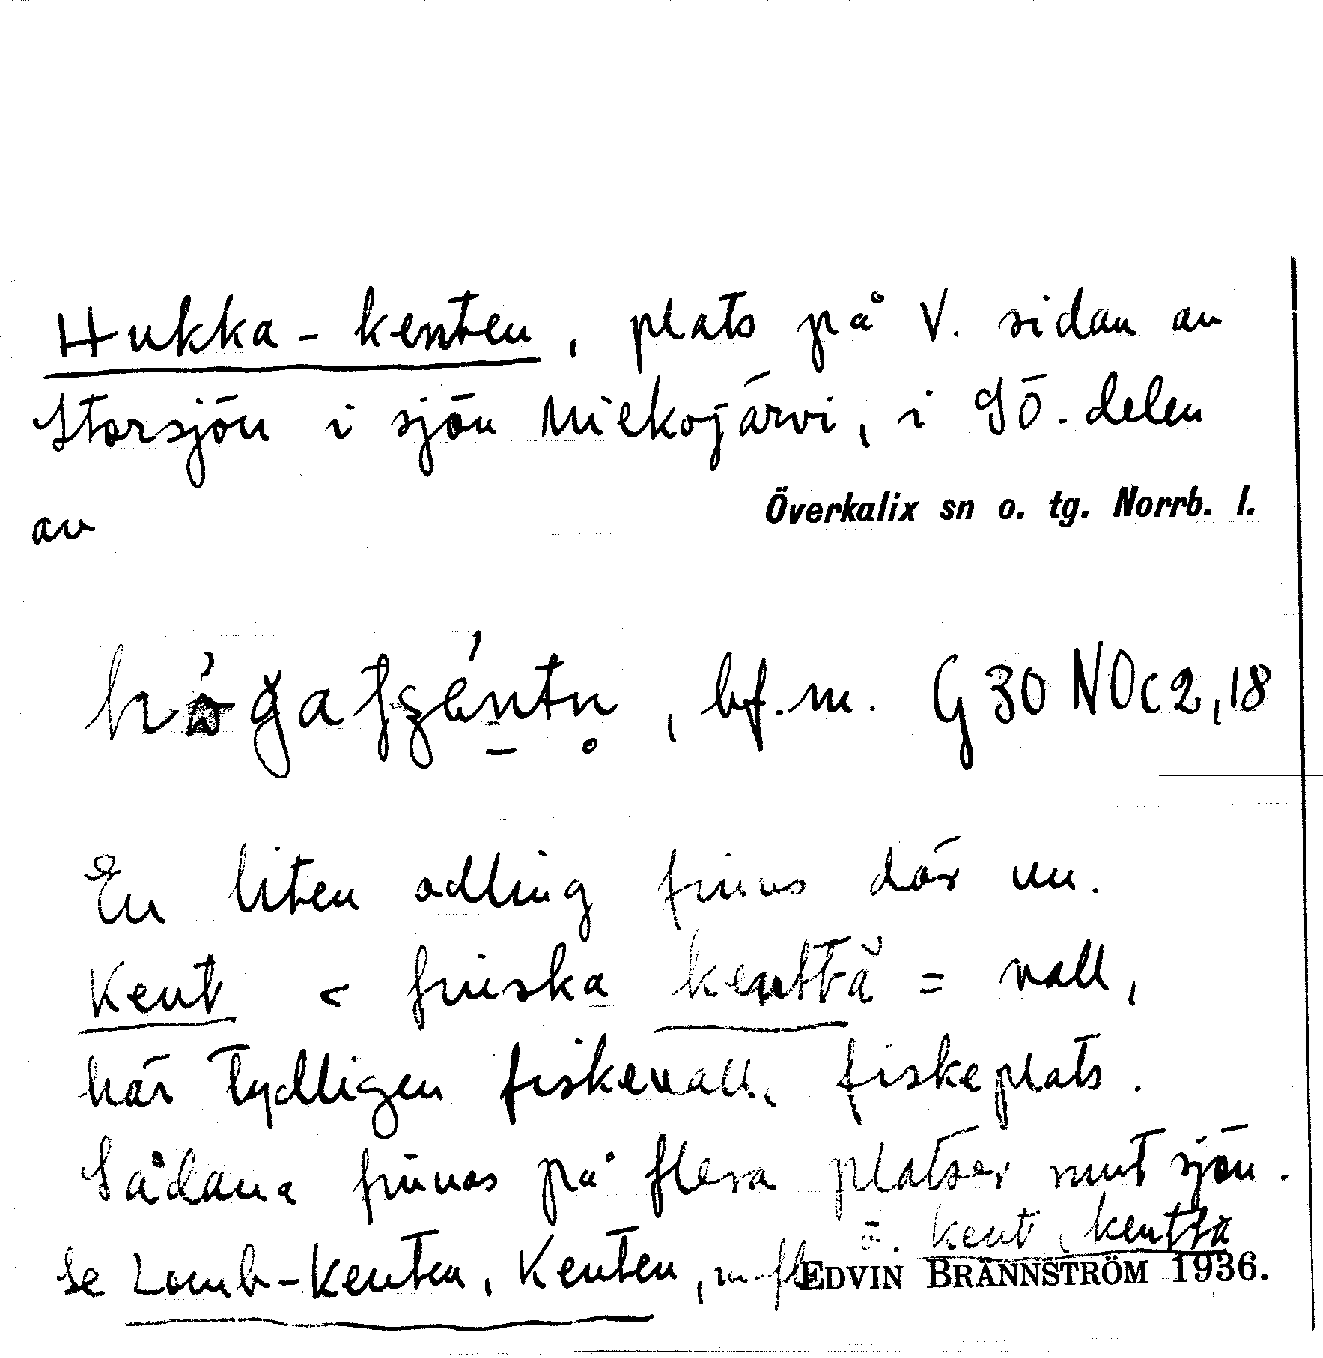 Hukka-kenten, plats på V. sidan av
Storsjön i sjön Miekojärvi, i SÖ. delen
av Överkalix sn o. tg. Norrb. l.
, bf. m. G 30 NOc2,18
En liten odling finns där nu.
Kent < finska kenttä = vall,
här tydligen fiskevall, fiskeplats.
Sådana finnas på flera platser runt sjön.
ä. kent, kenttä
Se Lomb-kenten, Kenten, m. fl.
EDVIN BRÄNNSTRÖM 1936.